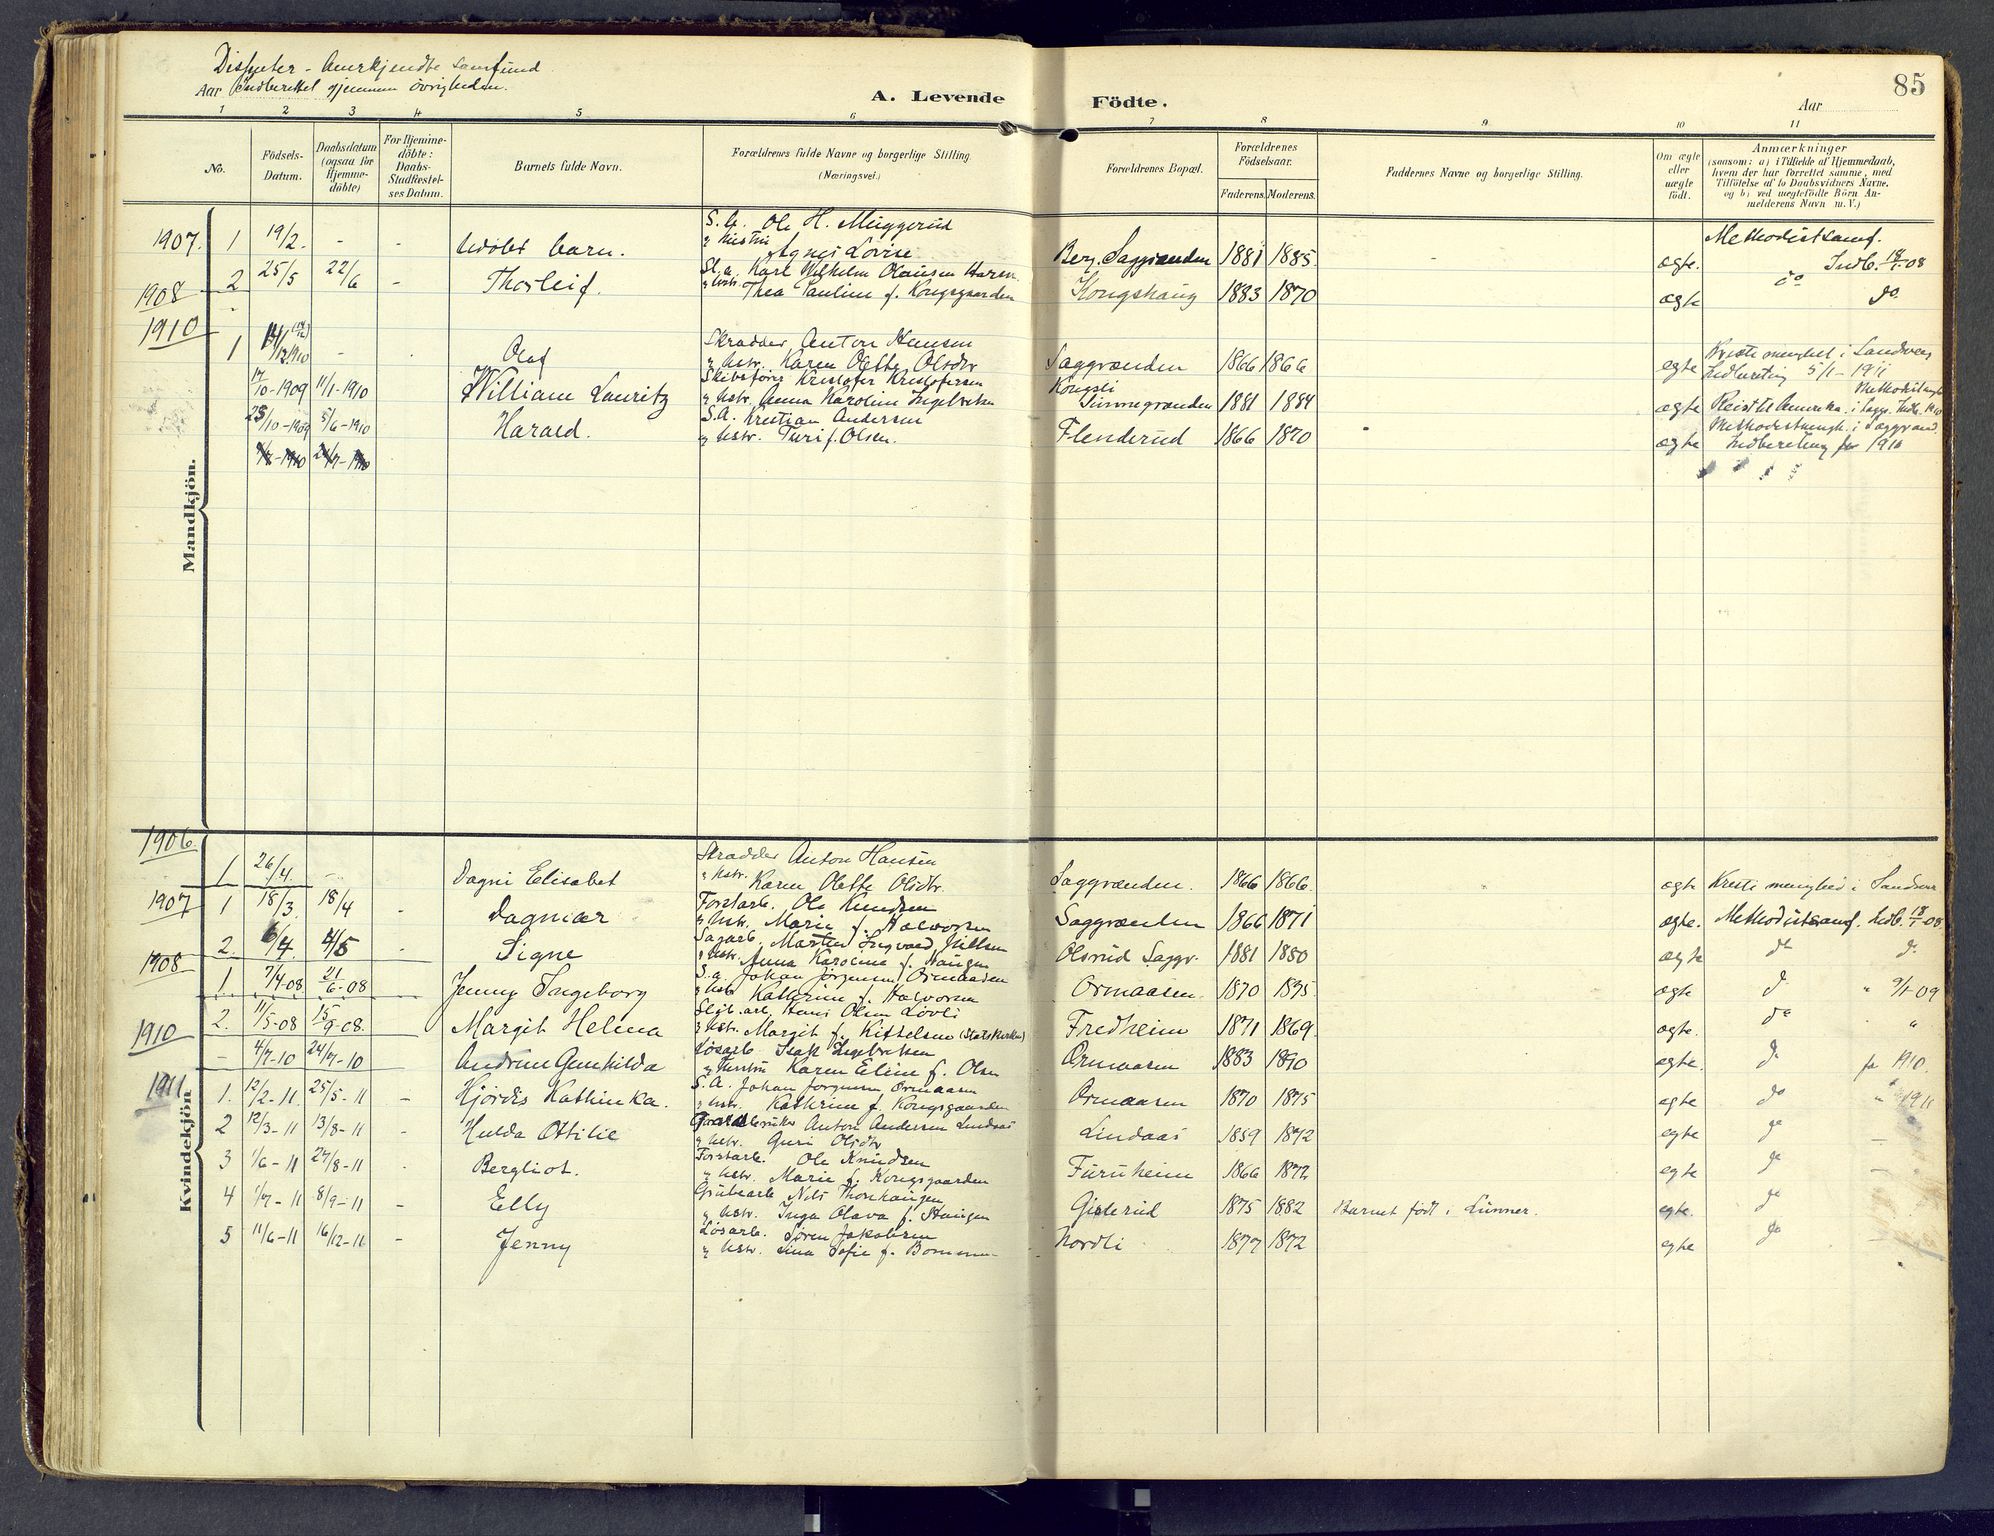 Dissenter - Anerkjendte samfund
Aar Indberettet gjennem övrigheden.
A. Levende Födte.
Aar
85
1 2 3 4 5 6 7 8 9 10 11
No.
Födsels-Datum.
Daabsdatum (ogsaa for Hjemmedöbte)
For Hjemmedöbte: Daabs-Stadfestelses Datum.
Barnets fulde Navn.
Forældrenes fulde Navne og borgerlige Stilling (Næringsvei.)
Forældrenes Bopæl.
Forældrenes Födselsaar.
Faderens. Moderens.
Faddernes Navne og borgerlige Stilling.
Om ægte eller uægte født.
Anmærkninger
(saasom: a) i Tilfælde af Hjemmedaab, hvem der har forrettet samme, med Tilföielse af to Daabsvidners Navne, og b) ved uægtefödte Börn Anmelderens Navn m. V.)
Mandkjön.
1907. 1 19/2. - - Udöbt barn. S. A. Ole H. Muggerud
& hustru Agnes Lovise Berg, Saggrænden 1881 1885. - ægte. Methodistsamf. Indb. 18/1-08
1908 2 25/5 22/6 - Thorleif. Sl. a. Karl Wilhelm Olausen Haren
& hstr. Thea Pauline f. Kongsgaarden Kongshaug 1883 1870 ægte do do.
1910 1 /12 1910 - Olaf Skrædder Anton Hansen
& hstr. Karen Olette Olsdtr Saggrænden 1866 1866 egte Kristi menighet i Sandsvær
Indberetning 5/1-1911
17/10-1909 11/1-1910 William Lauritz Skibsfører Kristofer Kristofersen
& hstr. Anna Karoline Ingebretsen Kongsli Sinnegrænden 1881 1884 ægte Reist til Amerika. Methodistmgh. i Sagg. Indb. 1910
25/10-1909 5/6-1910 Harald. S. A. Kristian Andersen
& hstr. Turi f. Olsen. Flenderud 1866 1870 ægte Methodistmengh. i Saggrænd.
Indberetning for 1910
Kvindekjön
1906. 1 26/4. - Dagni Elisabet Skrædder Anton Hansen
& hstr. Karen Olette Olsdtr. Saggrænden. 1866 1866. ægte Kristi menighed i Sandsvær
1907 1 18/3. 18/4 - Dagmar Forstarb. Ole Knudsen
& hstr. Marie f. Halvorsen Saggrænden 1866 1871 ægte. Methodistsamf. Indb. 18/1-08
2. 6/4. 4/5 - Signe Sagarb. Martin Ingvard Nilsen
& hstr. Anna Karoline f. Haugen Olsrud Saggr. 1881 1880 ægte do do
1908 1. 7/4-08 21/6-08 - Jenny Ingeborg S. a. Johan Jörgensen Ormaasen
& hstr Kathrine f. Halvorsen Ormaasen. 1870 1875 ægte do " 9/1-09
2. 11/5-08 15/9-08. - Margit Helena Slib. arb. Hans Olsen Lövli
& hstr. Margit f. Kittelsen (Statskirken) Fredheim 1871 1869. ægte. do "
1910 - 4/7-10 24/7-10 Andrine Gunhilda Løsarb. Isak Ingebretsen
& hustru Karen Eline f. Olsen Ormaasen 1883 1890 egte. do for 1910.
1911 1. 12/2-11. 25/5-11 - Hjördis Kathinka. S. A. Johan Jørgensen Ormaasen
& hstr. Kathrine f. Kongsgaarden Ormaasen 1870 1875 egte do " 1911
2 12/3-11 13/8-11 - Hulda Ottilie Gaardbruker Anton Andersen Lindaas
& hstr. Guri Olsdtr Lindaas 1859 1872 egte do -
3 1/6-11 27/8-11 - Bergliot. Forstarb. Ole Knudsen
& hstr. Marie f. Kongsgaarden Furuheim 1866 1872 egte do -
4 1/7-11 8/9-11 - Elly Grubearb. Nils Thonhaugen
& hstr. Inga Olava f. Haugen Gisterud 1875 1882 Barnet født i Lunner. egte. do
5 11/6-11 16/12-11 - Jenny Løsarb. Søren Jakobsen
& hstr. Lina Sofie f. Nordli 1877 1872 egte do